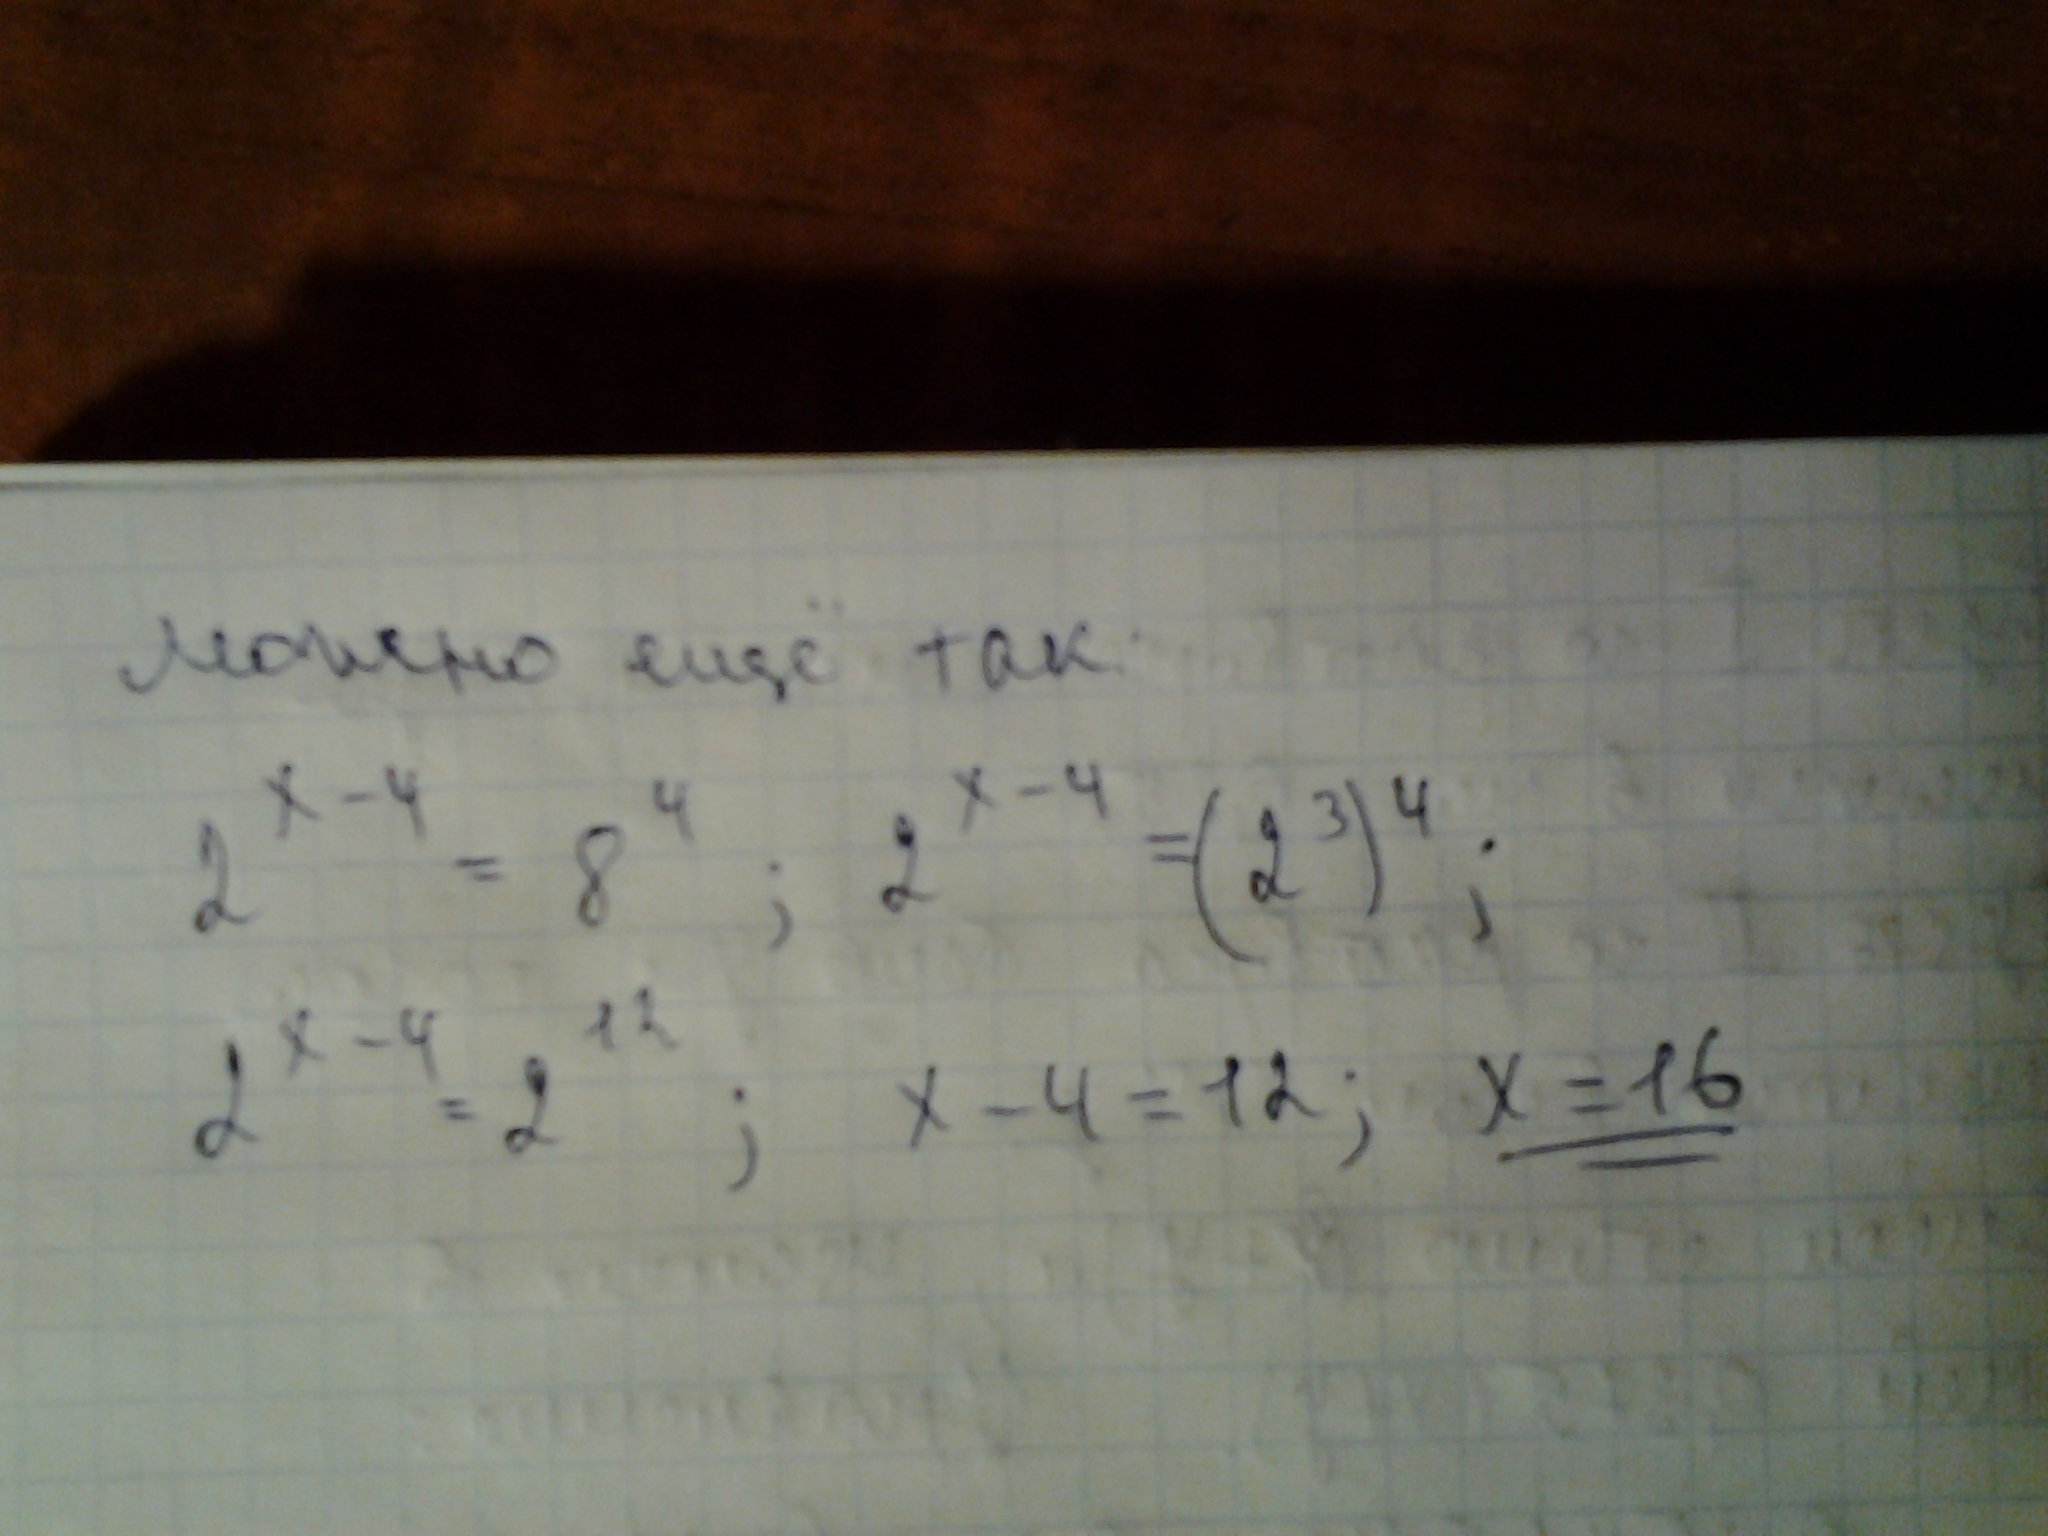 Можно ещё так:
2^{x-4} = 8^4 ; 2^{x-4} = (2^3)^4 ;
2^{x-4} = 2^{12} ; x - 4 = 12 ; x = 16